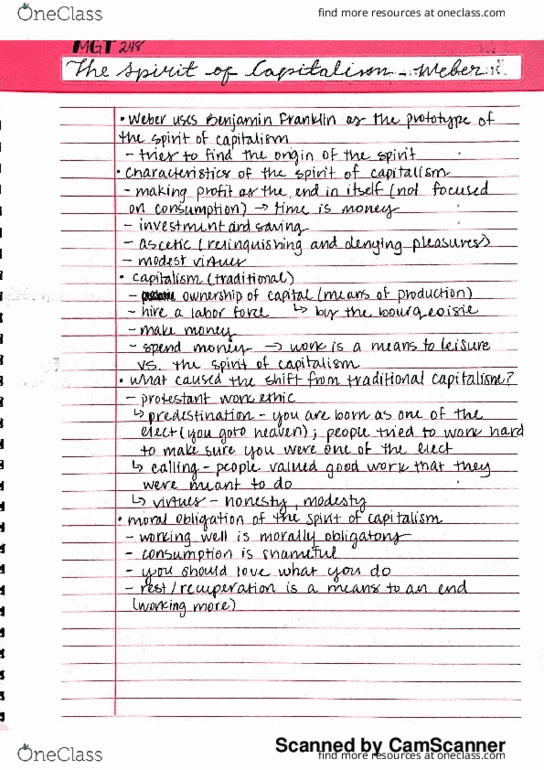 OneClass
find more resources at oneclass.com
MGT 248
The Spirit of Capitalism - Weber
• Weber uses Benjamin Franklin as the prototype of
the spirit of capitalism
- tries to find the origin of the spirit
• characteristics of the spirit of capitalism
- making profit as the end in itself (not focused
on consumption) → time is money
- investment and saving
- ascetic (relinquishing and denying pleasures)
- modest virtues
• capitalism (traditional)
- ownership of capital (means of production)
- hire a labor force ↳ by the bourgeoisie
- make money
- spend money → work is a means to leisure
vs. the spirit of capitalism
• what caused the shift from traditional capitalism?
- protestant work ethic
↳ predestination - you are born as one of the
elect (you go to heaven); people tried to work hard
to make sure you were one of the elect
↳ calling - people valued good work that they
were meant to do
↳ virtues - honesty, modesty
• moral obligation of the spirit of capitalism
- working well is morally obligatory
- consumption is shameful
- you should love what you do
- rest/recuperation is a means to an end
(working more)
Scanned by CamScanner
OneClass
find more resources at oneclass.com